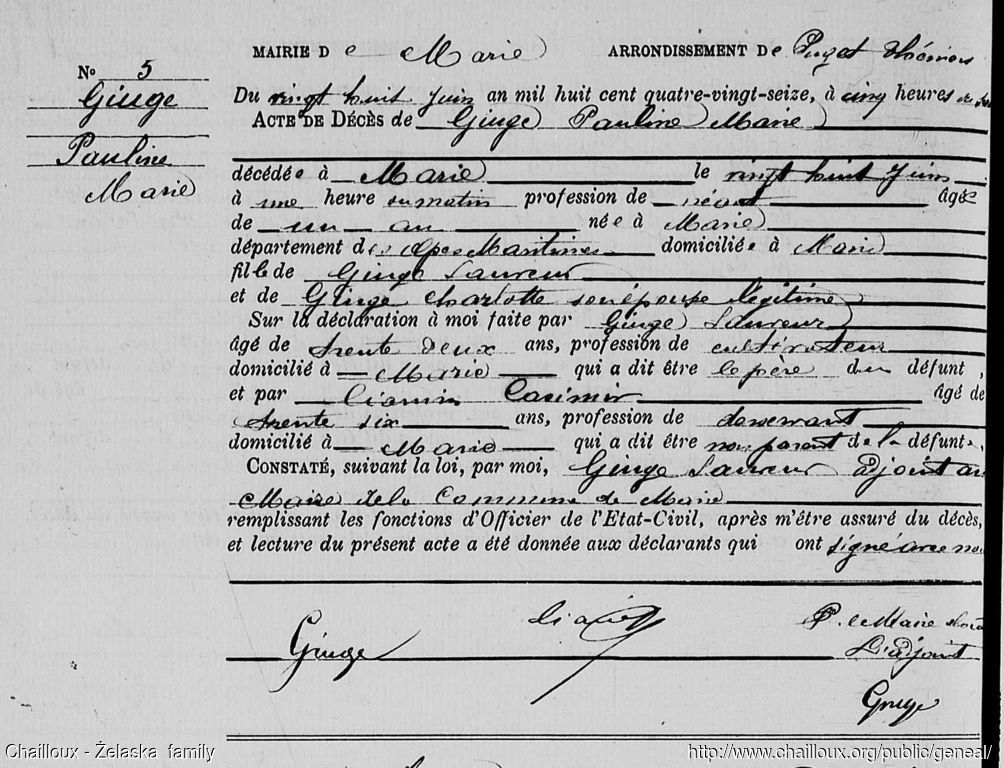 MAIRIE De Marie ARRONDISSEMENT De Puget Théniers
No 5
Giuge
Pauline
Marie
Du vingt huit Juin an mil huit cent quatre-vingt-seize, à cinq heures
ACTE DE DÉCÈS de Giuge Pauline Marie
décédée à Marie le vingt huit Juin
à une heure du matin profession de néant âgée
de un an née à Marie
département des Alpes Maritimes domiciliée à Marie
fille de Giuge Sauveur
et de Giuge Charlotte son épouse légitime
Sur la déclaration à moi faite par Giuge Sauveur
âgé de trente deux ans, profession de cultivateur
domicilié à Marie qui a dit être le père du défunt,
et par Casimir âgé de
trente six ans, profession de
domicilié à Marie qui a dit être non parent de la défunte,
CONSTATÉ, suivant la loi, par moi, Giuge Sauveur adjoint au
Maire de la Commune de Marie
remplissant les fonctions d'Officier de l'Etat-Civil, après m'être assuré du décès,
et lecture du présent acte a été donnée aux déclarants qui ont signé avec nous
P. le Maire
Giuge
L'adjoint
Giuge
Chailloux - Želaska family
http://www.chailloux.org/public/geneal/